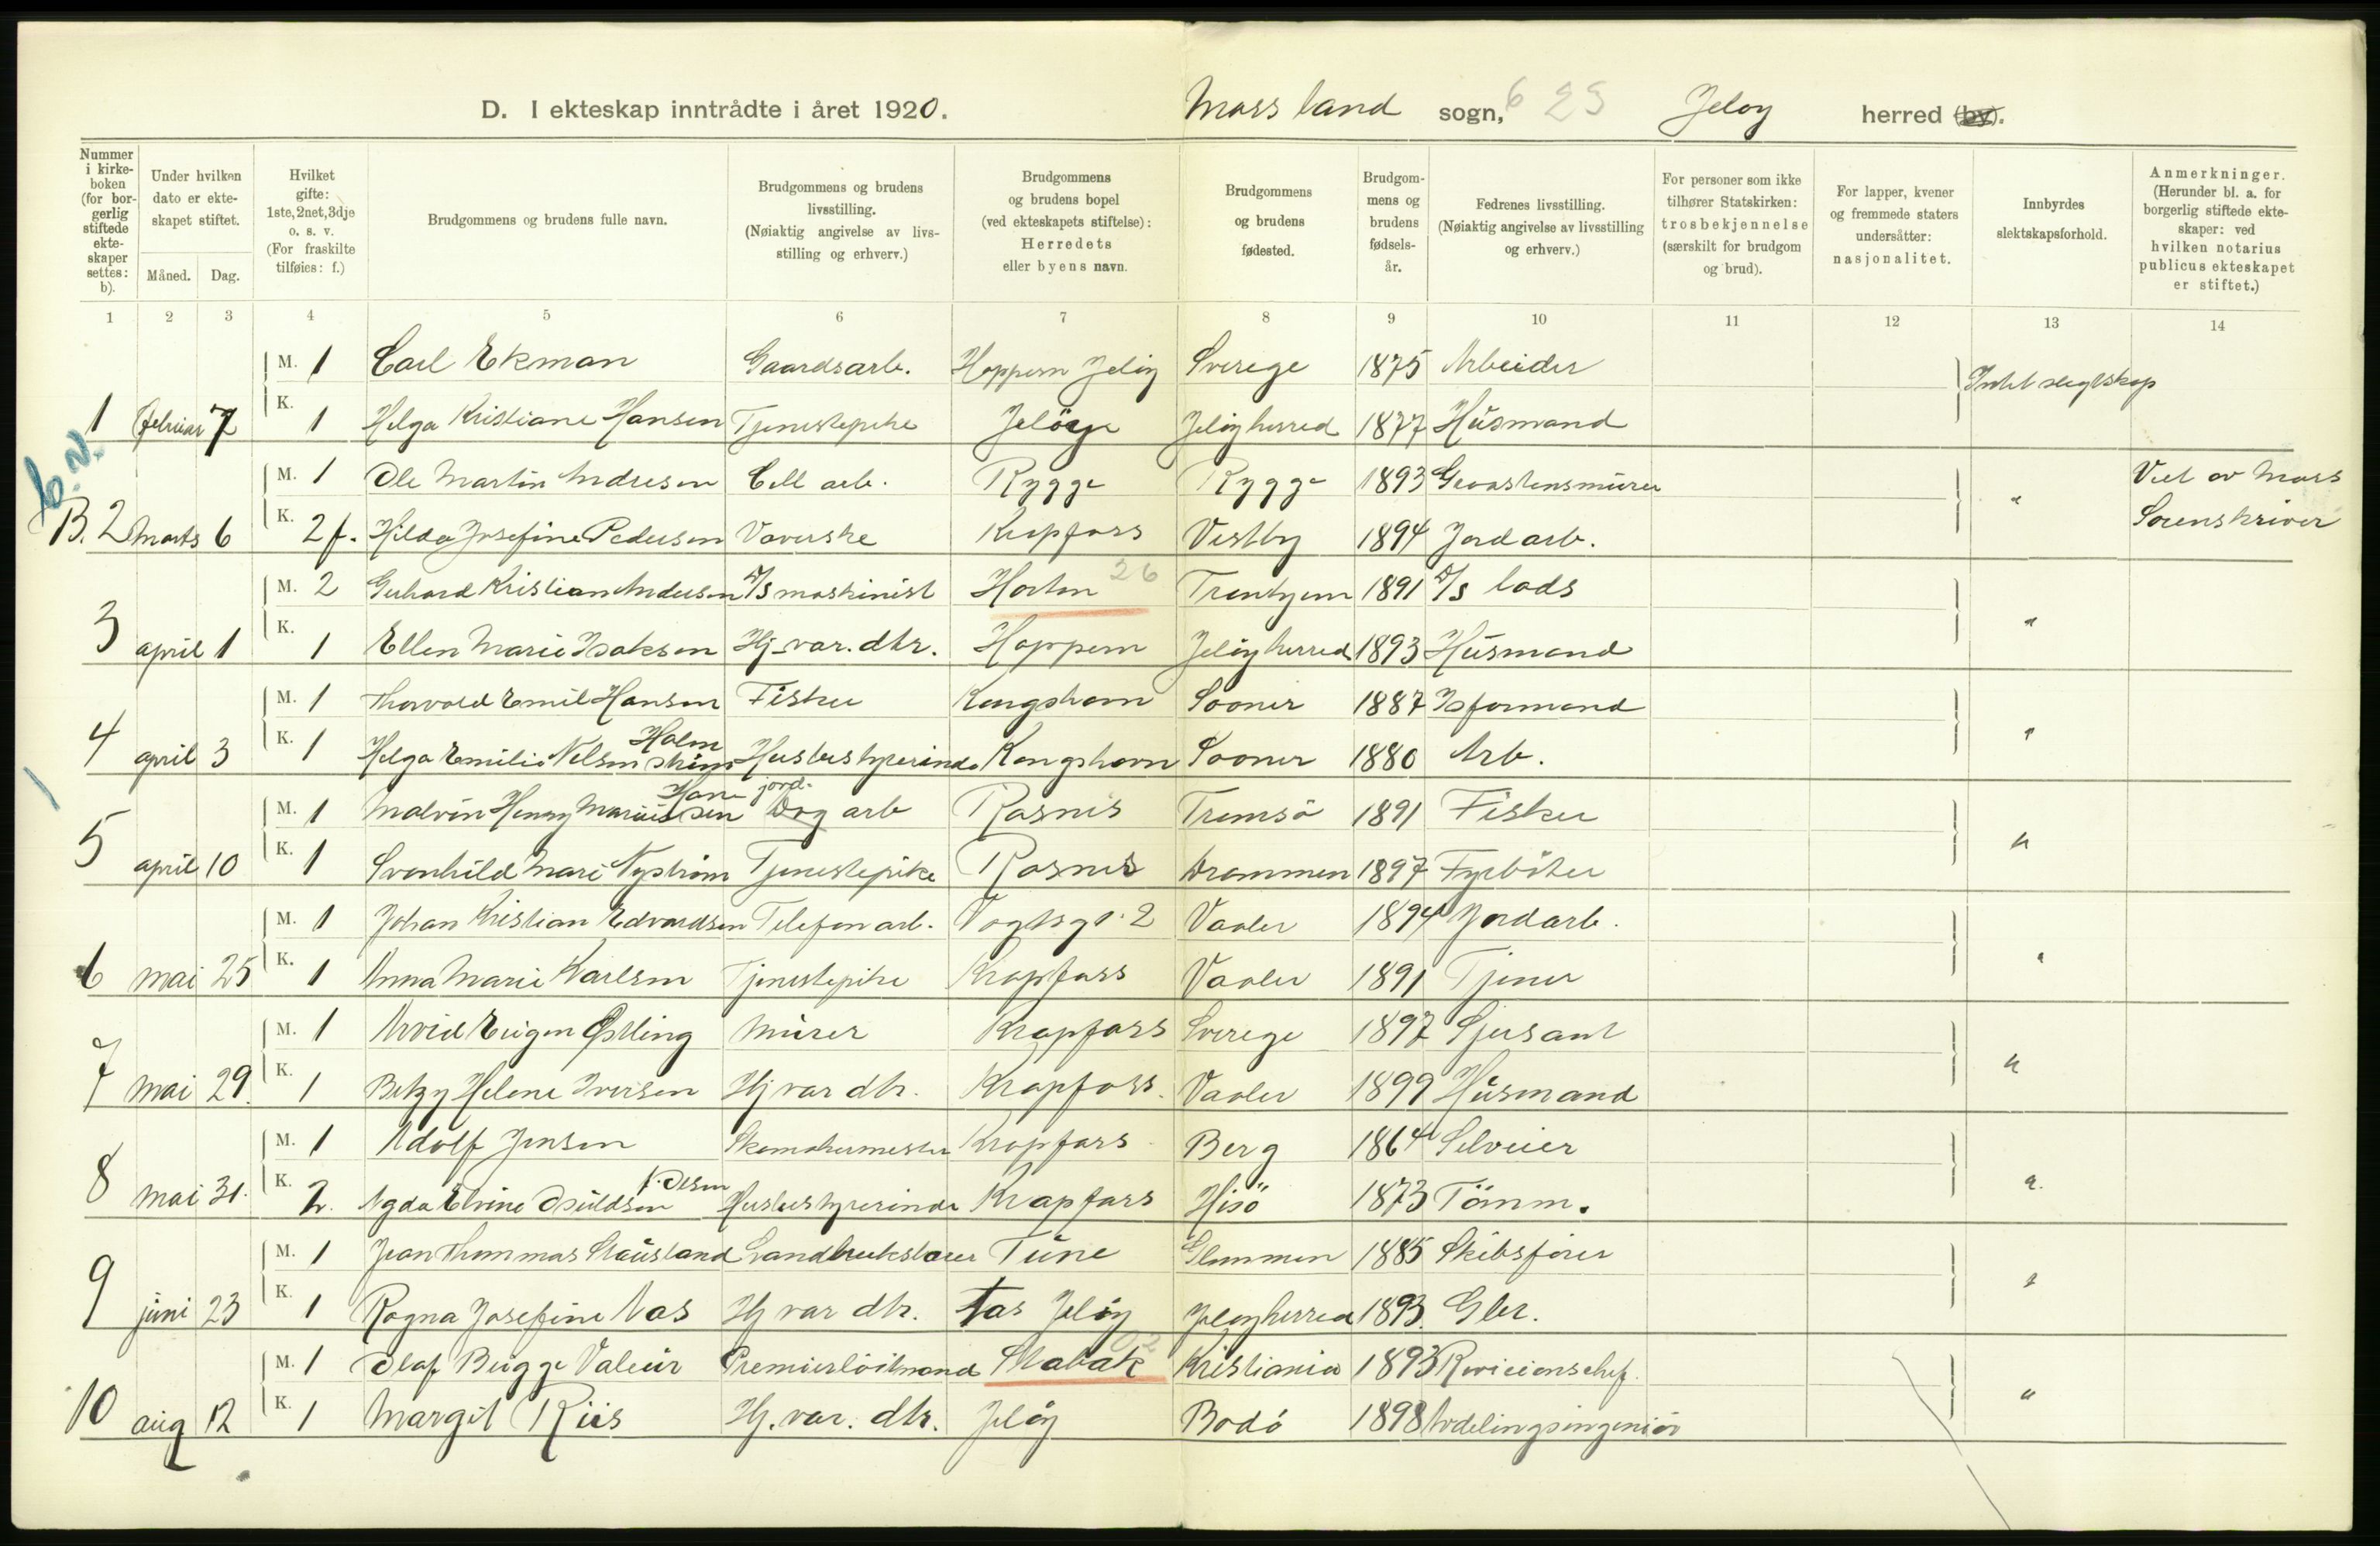 D. I ekteskap inntrådte i året 1920. Moss land sogn, 623 Jeløy herred (by).
Nummer i kirke-boken (for bor-gerlig stiftede ekte-skaper settes: b). Under hvilken dato er ekte-skapet stiftet. Måned. Dag. Hvilket gifte: 1ste, 2net, 3dje o. s. v. (For fraskilte tilføies: f.) Brudgommens og brudens fulle navn. Brudgommens og brudens livsstilling. (Nøiaktig angivelse av livs-stilling og erhverv.) Brudgommens og brudens bopel (ved ekteskapets stiftelse): Herredets eller byens navn. Brudgommens og brudens fødested. Brudgom-mens og brudens fødsels-år. Fedrenes livsstilling. (Nøiaktig angivelse av livsstilling og erhverv.) For personer som ikke tilhører Statskirken: trosbekjennelse (særskilt for brudgom og brud). For lapper, kvener og fremmede staters undersåtter: nasjonalitet. Innbyrdes slektskapsforhold. Anmerkninger. (Herunder bl. a. for borgerlig stiftede ekte-skaper: ved hvilken notarius publicus ekteskapet er stiftet.)
1 2 3 4 5 6 7 8 9 10 11 12 13 14
M. 1 Carl Ekman Gaardsarb. Hoppern Jeløy Sverege 1875 Arbeider Intet slegtskap
1 februar 7 K. 1 Helga Kristiane Hansen Tjenestepike Jeløy Jeløyherred 1877 Husmand
b.v.
M. 1 Ole Martin Andresen Cell arb. Rygge Rygge 1893 Graastensmurer " Viet av Moss
B. 2 marts 6 K. 2 f. Hilda Josefine Pedersen Væverske Krapfoss Vestby 1894 Jordarb. Sorenskriver
M. 2 Gerhard Kristian Andersen D/S maskinist Horten 26 Trontjem 1891 D/S lods "
3 april 1 K. 1 Ellen Marie Isaksen Hj. vær. dtr. Hoppern Jeløyherred 1893 Husmand
M. 1 Thorvald Emil Hansen Fisker Kongshavn Sooner 1887 Isformand "
4 april 3 K. 1 Helga Emilie Nelsen Holm Husbestyrerinde Kongshavn Sooner 1880 Arb.
M. 1 Malvin Henry Marius Hansen jord. Dag arb Rosnes Tromsø 1891 Fisker "
5 april 10 K. 1 Svanhild Marie Nystrøm Tjenestepike Rosnes Drammen 1897 Fyrbøter
M. 1 Johan Kristian Edvardsen Telefonarb. Vogtsgt. 2 Vaaler 1894 Jordarb. "
6 mai 25 K. 1 Anna Marie Karlsen Tjenestepike Krapfoss Vaaler 1891 Tjener
M. 1 Arvid Eugen Østling Murer Krapfoss Sverege 1897 Sjersant "
7 mai 29. K. 1 Betzy Helene Iversen Hj vær dtr. Krapfoss. Vaaler 1899 Husmand
M. 1 Adolf Jensen Skomakermester Krapfoss Berg 1864 Selveier "
8 mai 31. K. 2. Agda Elvine Osuldsen f. Olsen Husbestyrerinde Krapfoss Hisø 1873 Tømm.
M. 1 Jean Thommas Stausland Landbrukslærer Tune Glemmen 1885 Skibsfører "
9 juni 23 K. 1 Ragna Josefine Aas Hj vær dtr. Aas Jeløy Jeløyherred 1893. Gbr.
M. 1 Olaf Brigge Valeur Premierløitnand Stabæk 02 Kristiania 1893 Revisionschef. "
10 aug 12 K. 1 Margit Riis Hj. vær. dtr. Jeløy Bodø 1898 Avdelingsingeniør